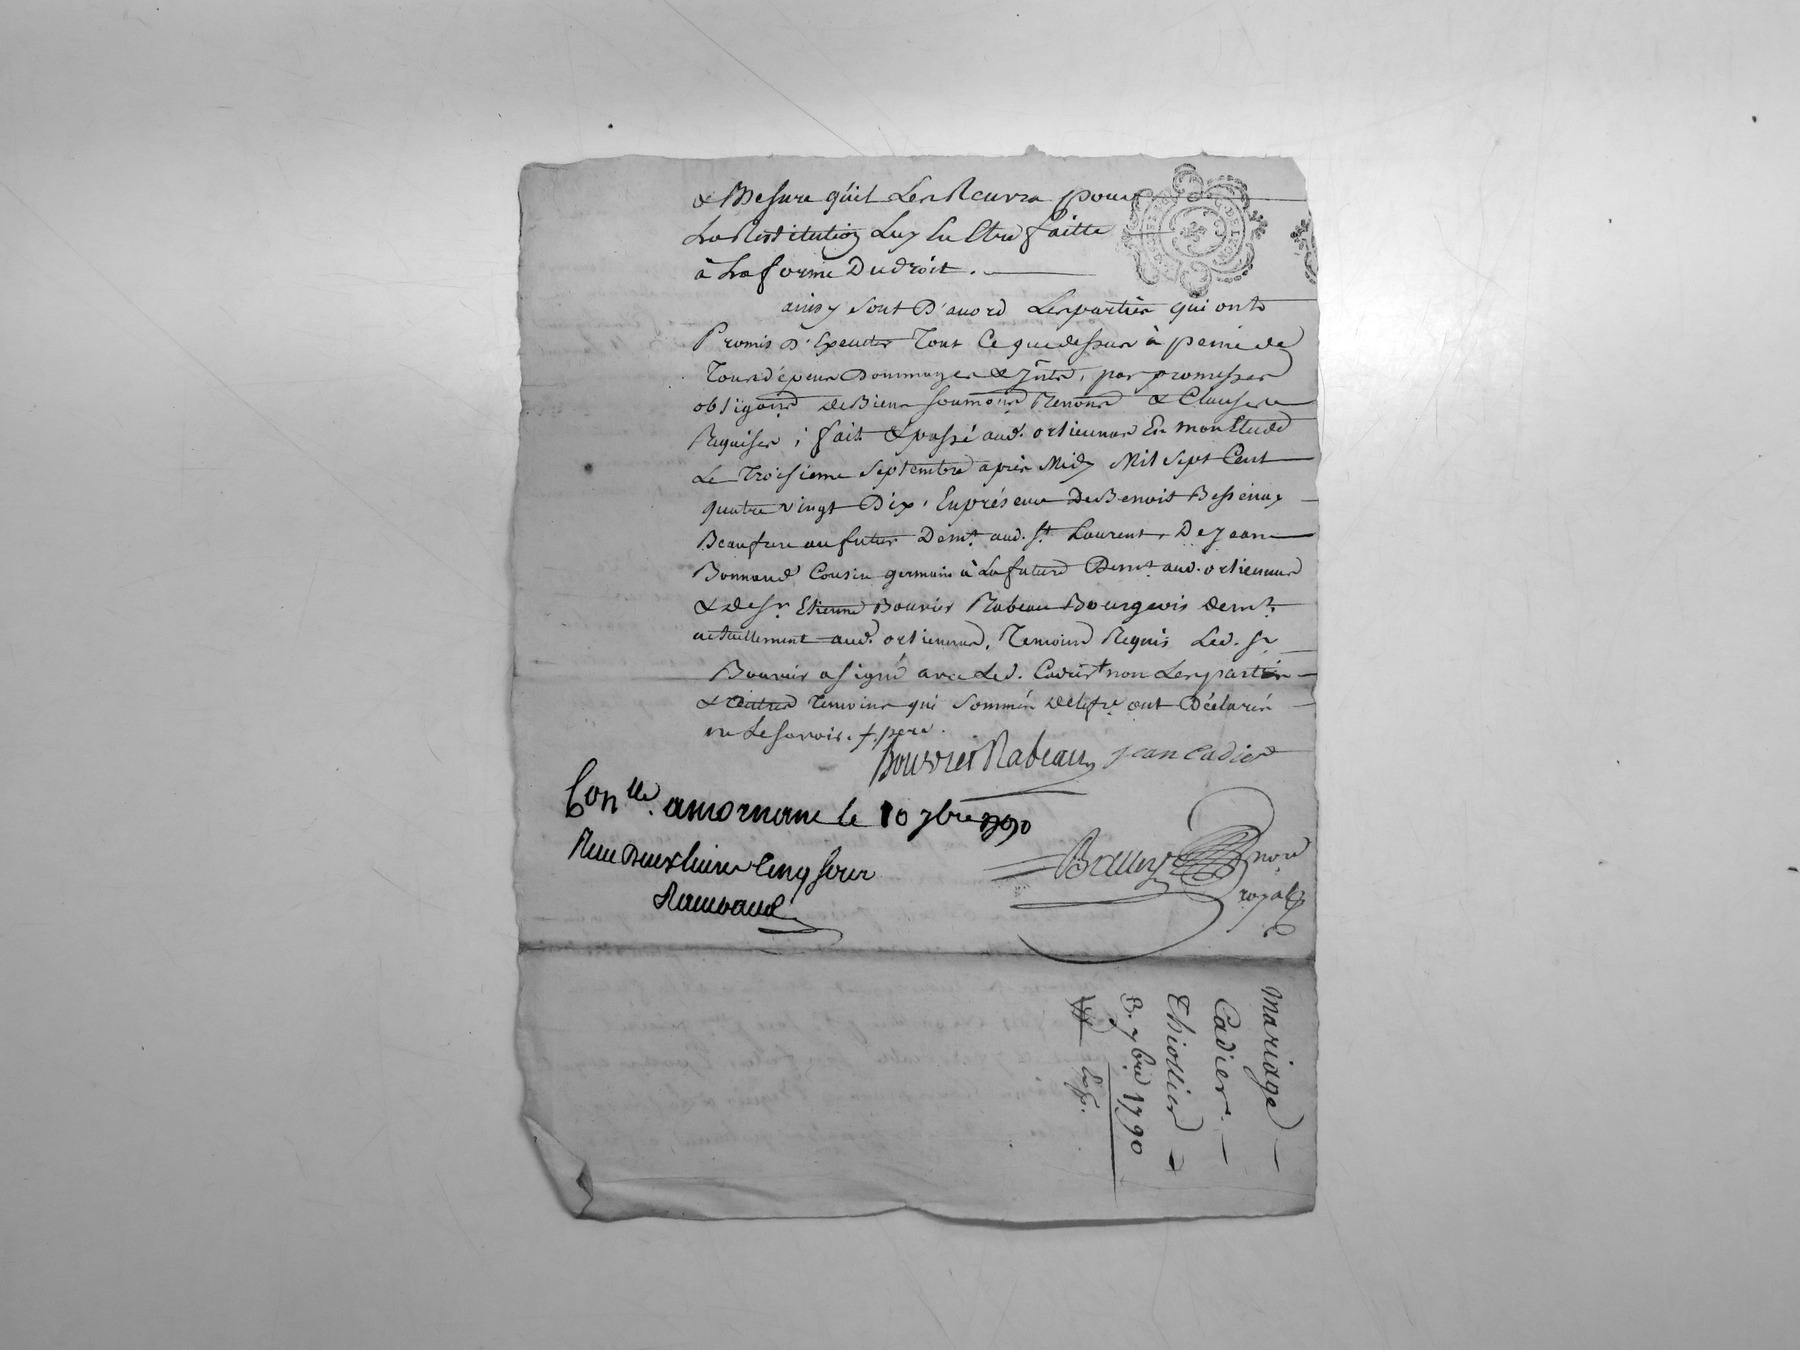 & Mesure quil Les Recevra pour
La Restitution Luy En Etre faitte
à La forme Du droit.
ainsy sont D'acord Les parties qui onts
Promis D'Executer Tout Ce que dessus à peine de
Tous dépens Dommages & Jnts, par promesses
obligaõns de Biens soumõns Renons & Clauses
Requises ; fait & passé aud. orliennas En mon Etude
Le Troisieme septembre après Midy Mil sept Cent
quatre vingt Dix, En présence De Benoit Bessenay
Beaufrere au futur Demt. aud. St. Laurent, De Jean
Bonnand Cousin germain à La future Demt. aud. orliennas
& de Sr. Etienne Bouvier Rabeau Bourgeois demt.
actuellement aud. orliennas, Temoins Requis Led. Sr
Bouvier a signé avec Led. Cadier + non Les parties
& autres Temoins qui sommés de Ce fre ont Déclarés
ne Le savoir. +. pere.
Bouvier Rabeau jean Cadier
Con lle. a mornant le 10 7bre 1790
Reçu Deux livres Cinq sous
nore
royal
Mariage
Cadier.
Thiollier
3. 7bre 1790
Exp.